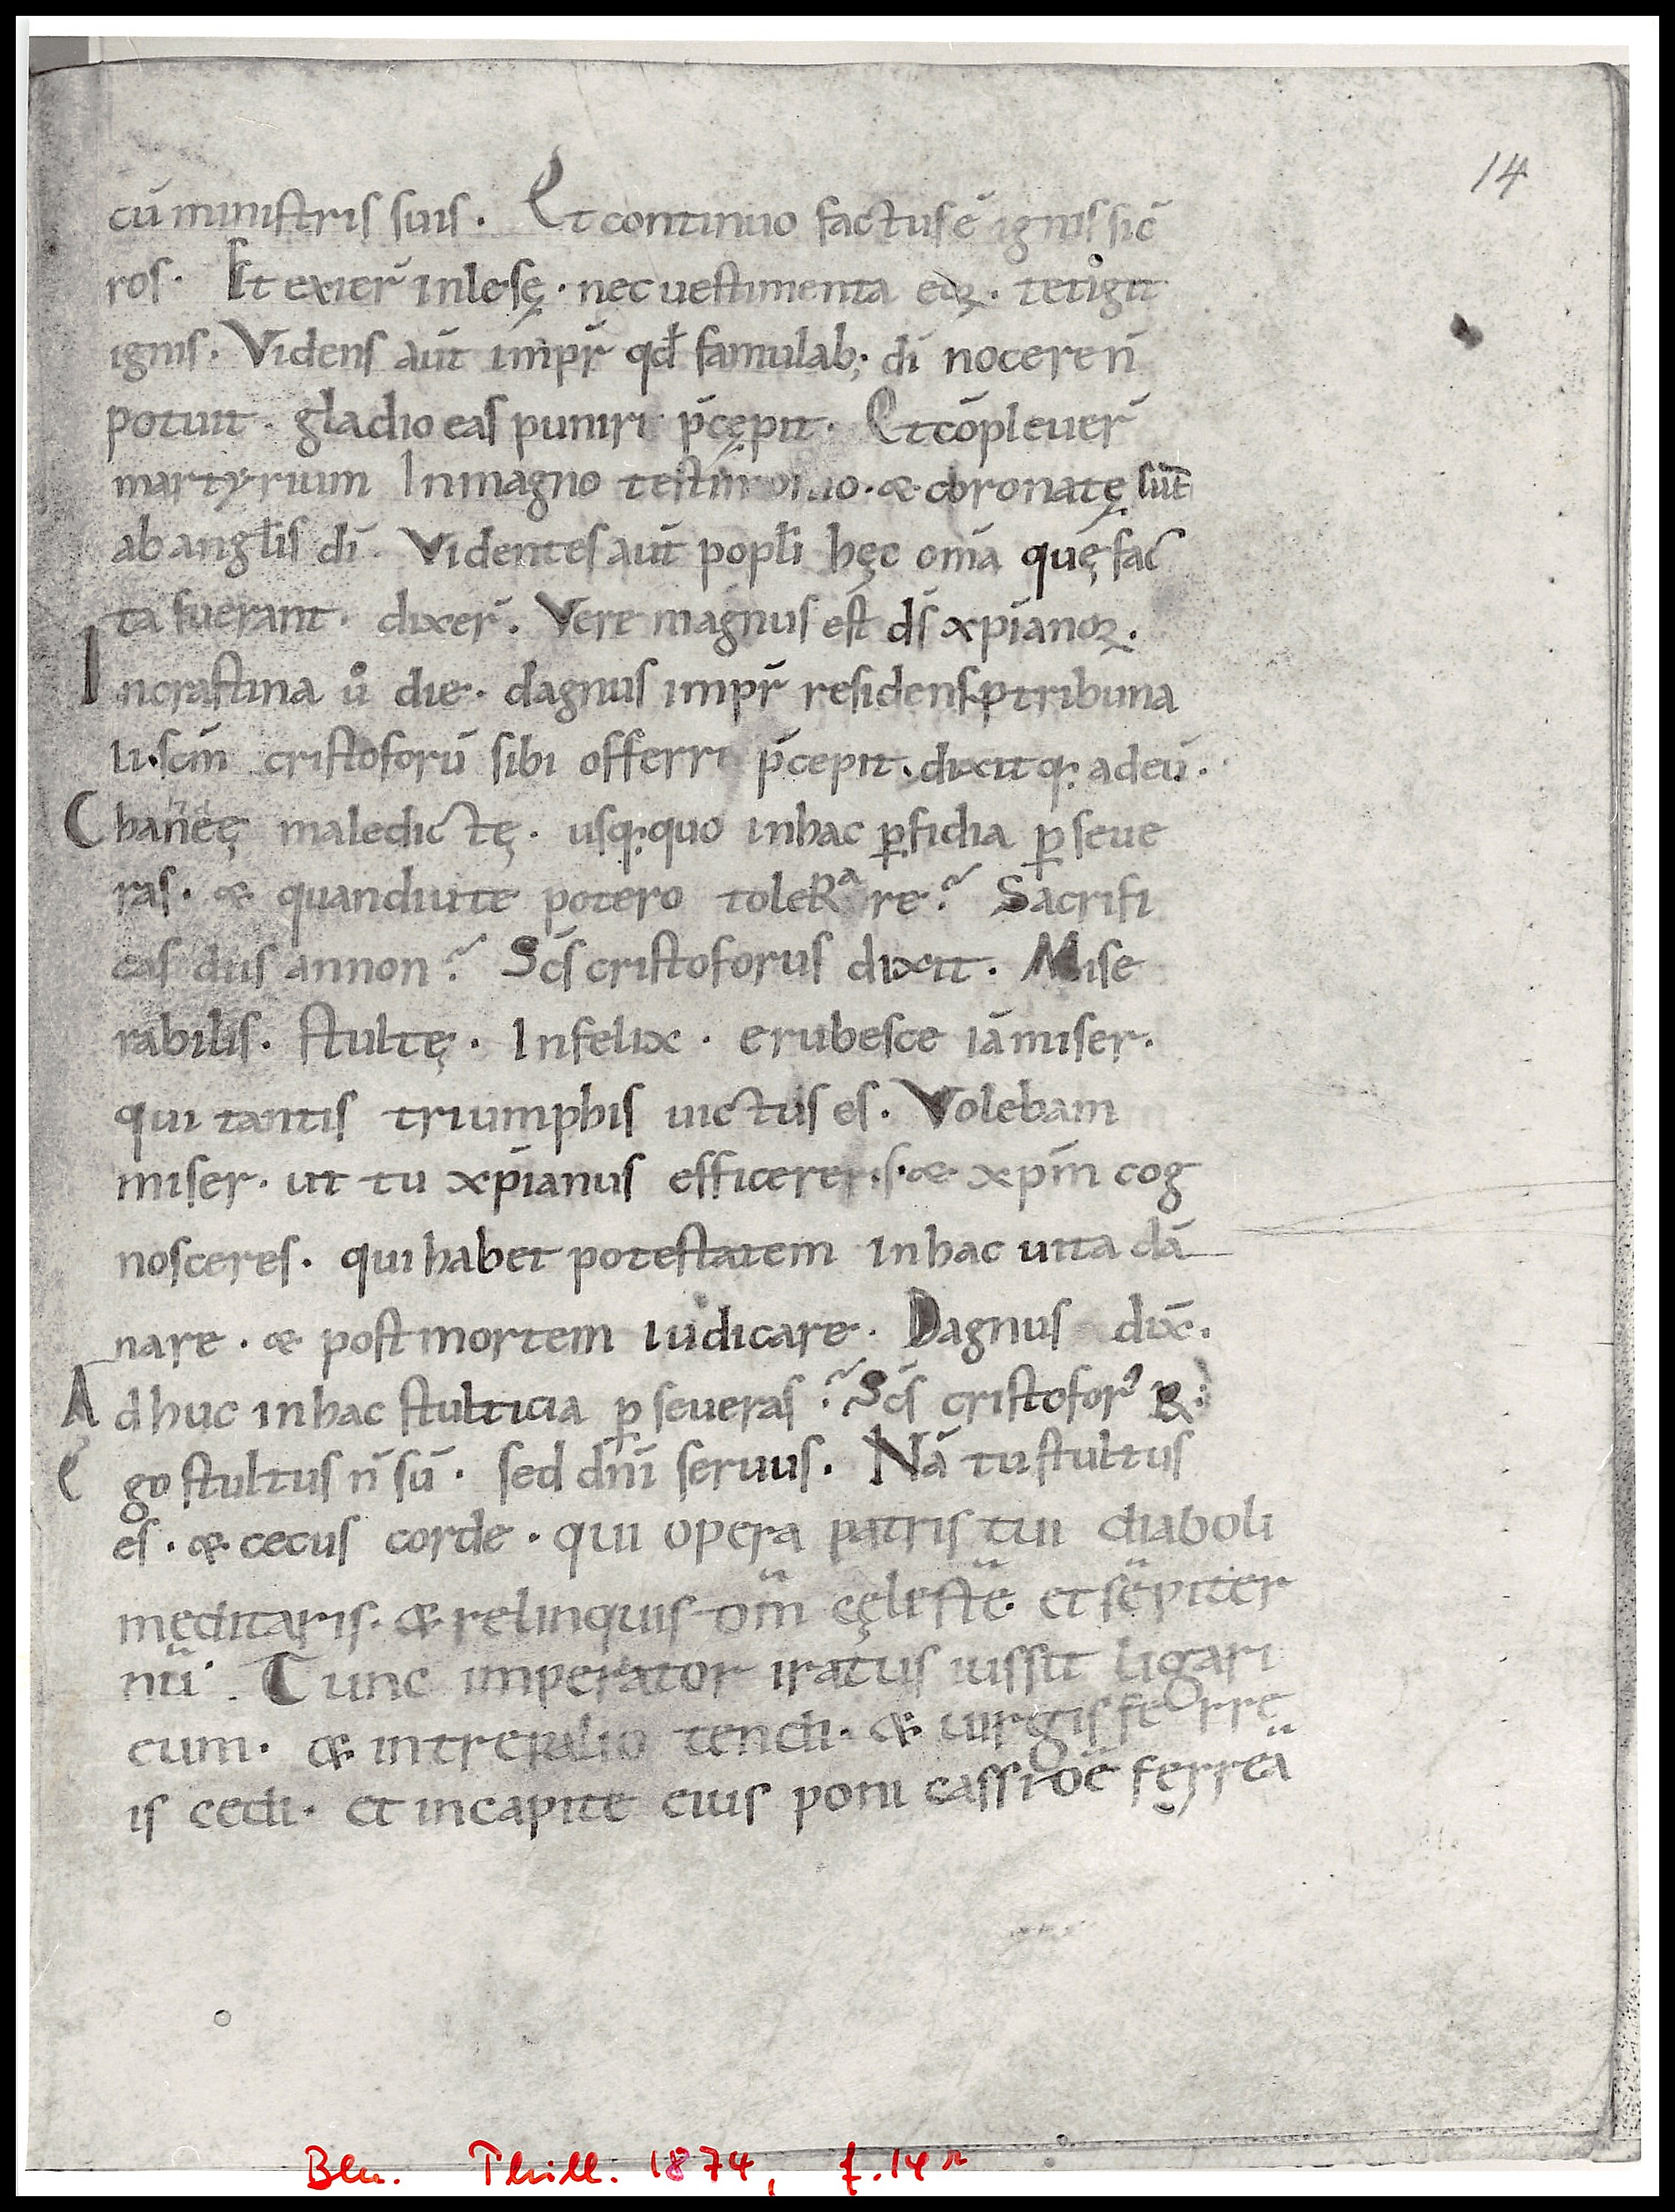 14
cū miniſtris ſuis. Et continuo factus ē ignis ſic̄
ros. Et exier̄ inleſę. nec ueſtimenta eoꝝ. tetigit
ignis. Videns aut̄ imp̄r qd̄ famulab; dī nocere n̄
potuit. gladio eas puniri p̄cępit. Et cōpleuer̄
martyrium In magno teſtimonio. & coronatę sun̄t
ab angl̄is dī. Videntes aut̄ popl̄i hęc om̄a quę fac
ta fuerant. dixer̄. Vere magnus eſt d̄s xp̄ianoꝝ.
Incraſtina ů die. dagnus imp̄r residens ꝓ tribuna
li. ſcm̄ criſtoforū sibi offerri p̄cepit. dixitq; ad eū.
Chaneę maledictę. uſq; quo in hac ꝑfidia ꝑseue
ras. & quandiu te potero toleRare? Sacrifi
cas diis an non? Sc̄s criſtoforus dixit. Mise
rabilis. ſtultę. Infelix. erubesce iā miser.
qui tantis triumphis uictus es. Volebam
miser. ut tu xp̄ianus effi­cereris. & xp̄m cog
nosceres. qui habet poteſtatem in hac uita dā
nare. & poſt mortem iudicare. Dagnus dix̄.
Adhuc in hac ſtulticia ꝑseueras? Sc̄s criſtoforꝰ R̄.
Ego ſtultus n̄ sū. sed dn̄i seruus. Nā tu ſtultus
es. & cecus corde. qui opera patris tui diaboli
mędita­ris. & relinquis om̄ cęleſtē. et sēpiter
nū. Tunc imperator iratus iussit ligari
eum. & in trepalio tendi. & uirgis ferre
is cedi. et in capite eius poni cassi­dē fęrreā
Bln. Phill. 1874, f. 14r